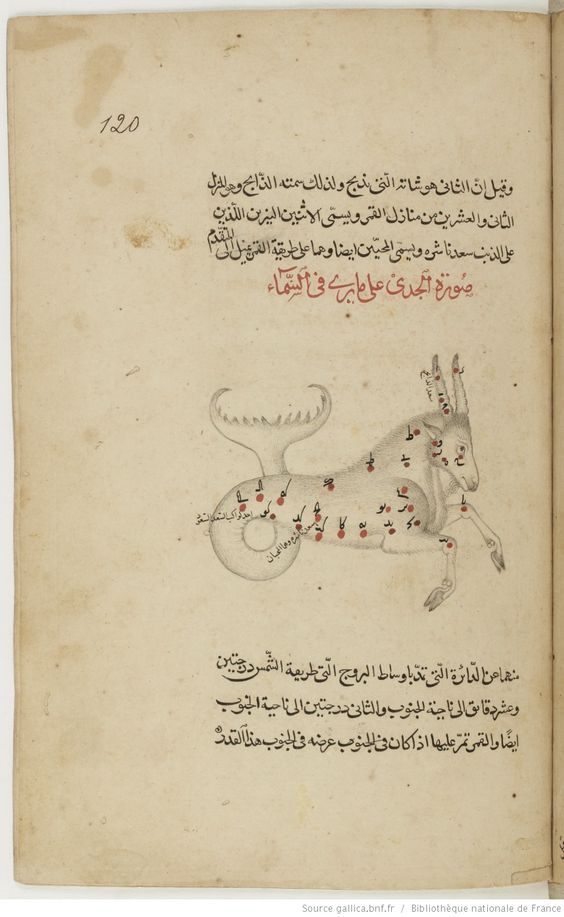 120
وقيل إنّ الثاني هو شاته الّتي تذبح ولذلك سمته الذّابح وهو المنزل
الثاني والعشرين من منازل القمر ويسمّى الاثنين النيرين اللّذين
على الذنب سعد ناشره ويسمّى المحبّين ايضا وهما على طريقة القمر يميل الى المتقدّم
صُورَة الجدي على ما يرى في السَّمَاء
سعد الذابح
سعد ناشره وهما المحبان
منهما عن الدّائرة الّتي تمدّ باوساط البروج الّتي طريقة الشّمس درجتين
وعشر دقائق الى ناحية الجنوب والثانى درجتين الى ناحية الجنوب
ايضًا والقمر تمرّ عليها اذا كان في الجنوب عرضه في الجنوب هذا القدر
Source gallica.bnf.fr / Bibliothèque nationale de France